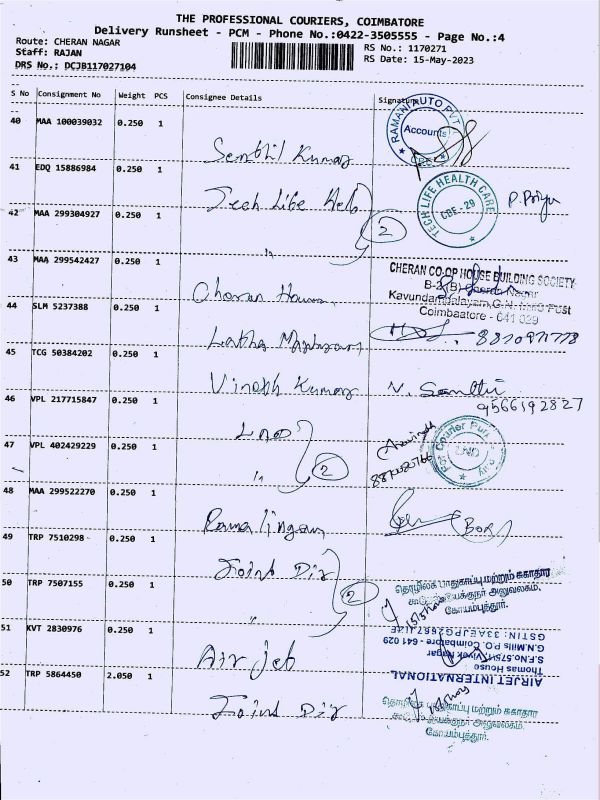 THE PROFESSIONAL COURIERS, COIMBATORE
Delivery Runsheet - PCM - Phone No.:0422-3505555 - Page No.:4
Route: CHERAN NAGAR
Staff: RAJAN
DRS No.: DCJB117027104
RS No.: 1170271
RS Date: 15-May-2023
S No Consignment No Weight PCS Consignee Details Signature
40 MAA 100039032 0.250 1 Senthil Kumar
RAMANI AUTO PVT
Accounts
CBE
41 EDQ 15886984 0.250 1 Tech Life Helt
TECH LIFE HEALTH CARE
CBE-29
P. Priya
42 MAA 299304927 0.250 1 "
2
43 MAA 299542427 0.250 1 Charan Housin
CHERAN CO-OP HOUSE BUILDING SOCIETY
B-2 (B) Cheran Nagar
Kavundampalayam, G.N. Mills Post
Coimbaatore - 641 029
44 SLM 5237388 0.250 1 Latha
8870971778
45 TCG 50384202 0.250 1 Vinoth Kumar
V. Santhi
9566192827
46 VPL 217715847 0.250 1 LMD
47 VPL 402429229 0.250 1 "
2
For Courier Purpose Only
48 MAA 299522270 0.250 1 Ramalingam
49 TRP 7510298 0.250 1 Joint Dir
50 TRP 7507155 0.250 1
2
தொழிலக பாதுகாப்பு மற்றும் சுகாதார
இயக்குநர் அலுவலகம்,
கோயம்புத்தூர்.
51 KVT 2830976 0.250 1 Air jet
AIRJET INTERNATIONAL
Thomas House
S.F.No.575/1, Vivek Nagar
G.N.Mills P.O. Coimbatore - 641 029
52 TRP 5864450 2.050 1 Joint Dir
தொழிலக பாதுகாப்பு மற்றும் சுகாதார
இயக்குநர் அலுவலகம்,
கோயம்புத்தூர்.